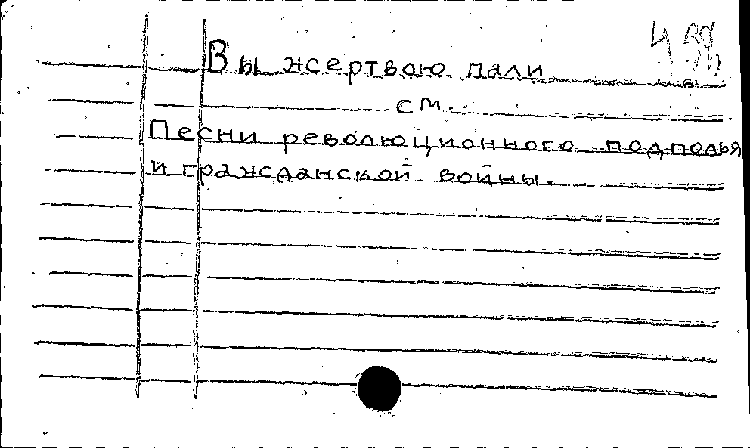 Вы жертвою пали
см.
Песни революционного подполья
и гражданской войны.